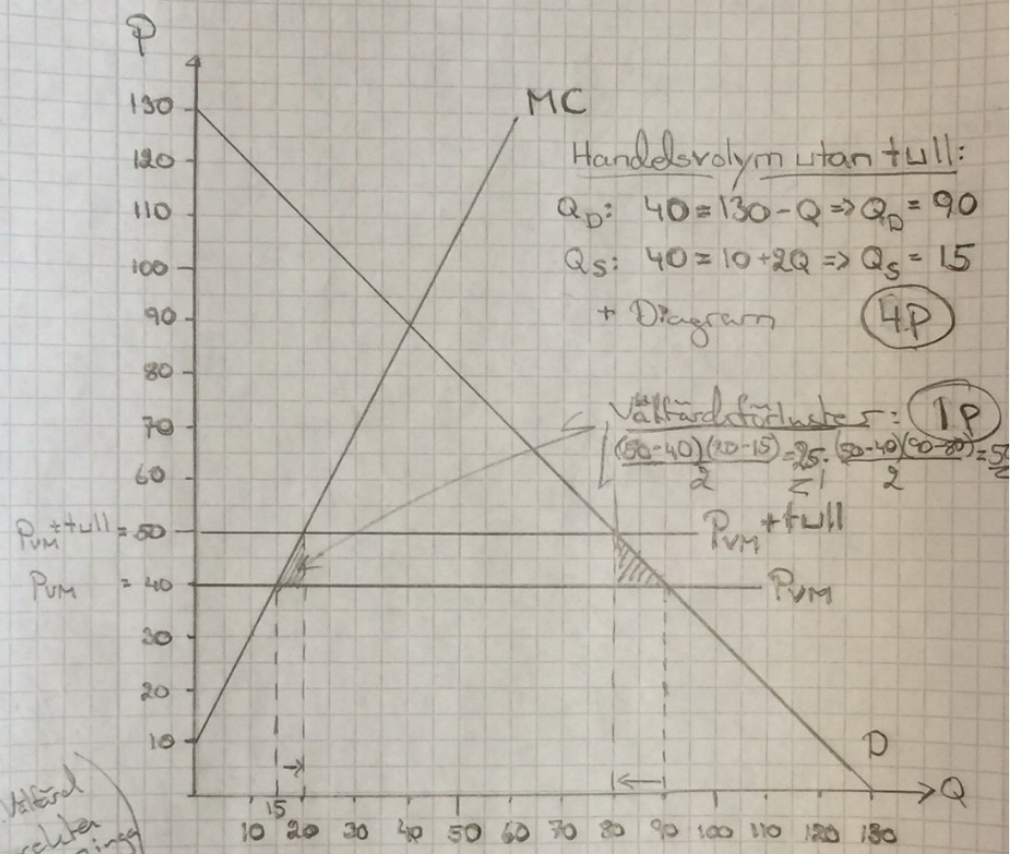 P
130
120
110
100
90
80
70
60
PVM + tull = 50
PVM = 40
30
20
10
MC
Handelsvolym utan tull:
QD: 40 = 130 - Q => QD = 90
QS: 40 = 10 + 2Q => QS = 15
+ Diagram
4P
Välfärdsförluster: 1P
(50-40)(20-15)/2 = 25; (50-40)(90-80)/2 = 50
PVM + tull
PVM
D
Q
15
10 20 30 40 50 60 70 80 90 100 110 120 130
Välfärd